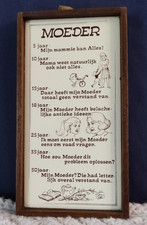 MOEDER
5 jaar
Mijn mammie kan Alles!
10 jaar
Mama weet natuurlijk
ook niet alles.
15 jaar
Daar heeft mijn Moeder
totaal geen verstand van.
18 jaar
Mijn Moeder heeft belache-
lijke antieke ideeën.
25 jaar
Ik moet eerst mijn Moeder
eens om raad vragen.
35 jaar
Hoe zou Moeder dit
probleem oplossen?
50 jaar
Mijn Moeder? Die had letter-
lijk overal verstand van.